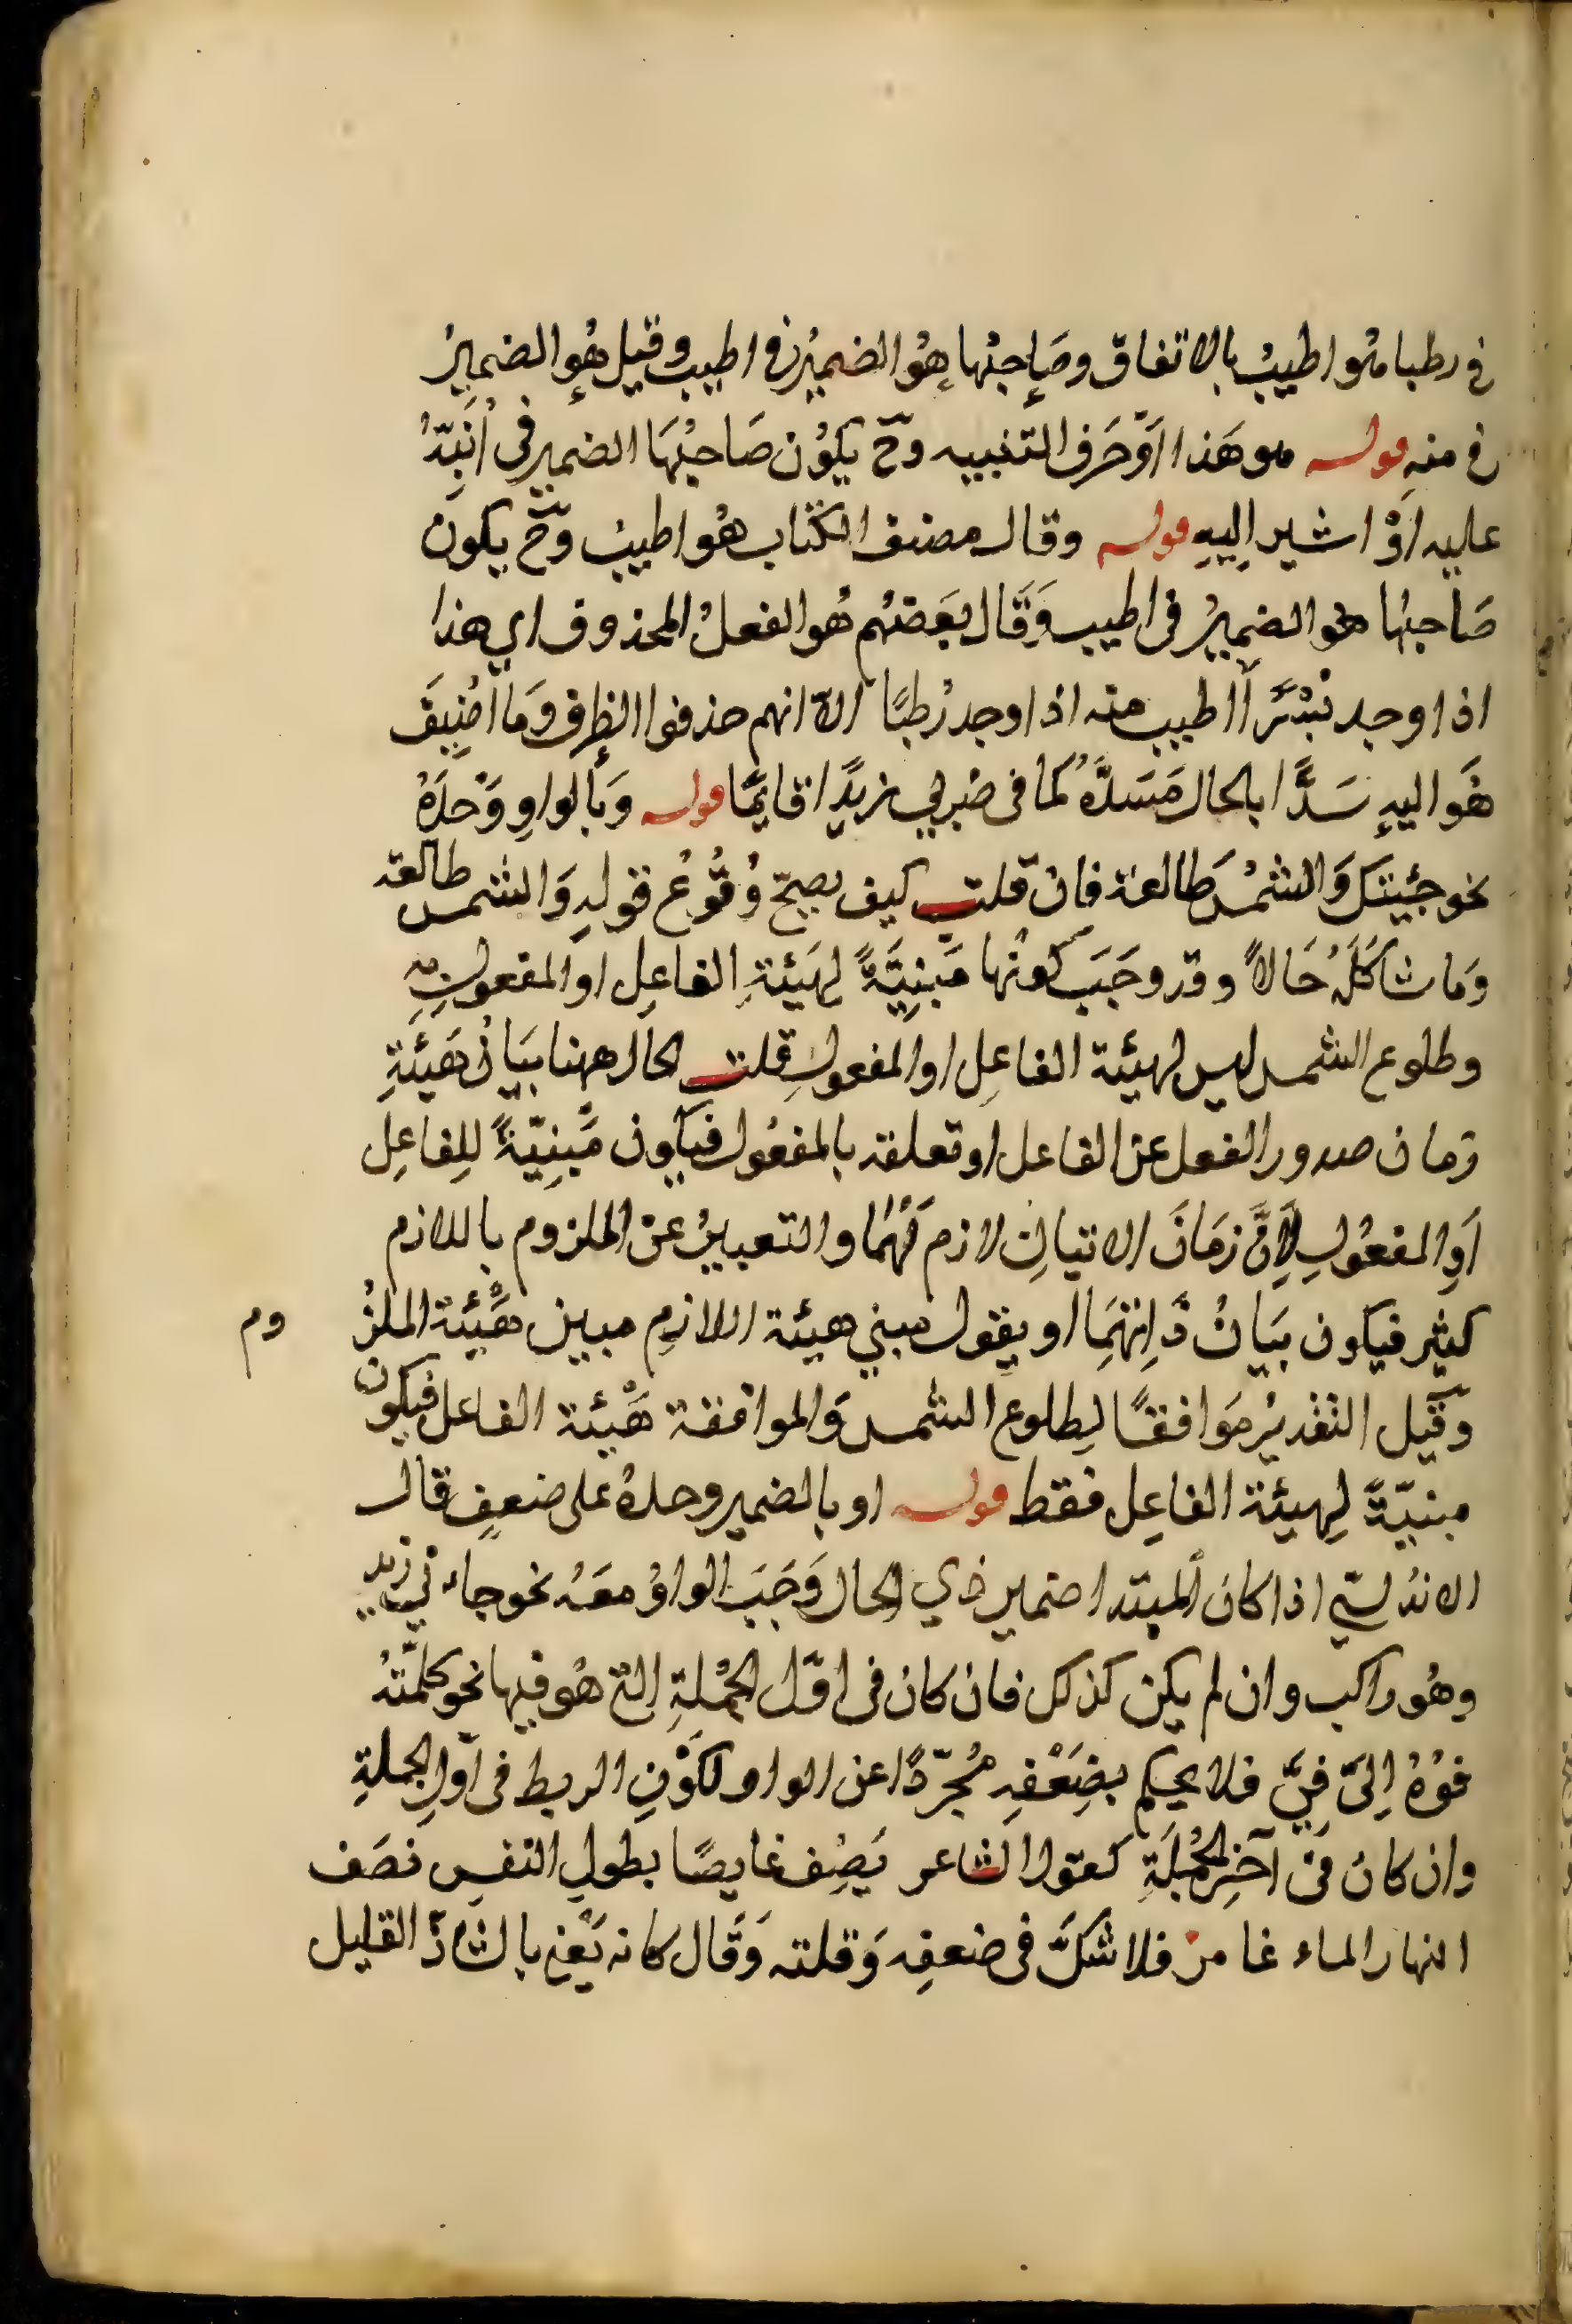 في رطبا هُو اطيبُ بالاتفاق وصَاحِبُها هُو الضميرُ في اطيب وقيل هُو الضميرُ
في منهِ قوله هو هَذا اوْ حَرف التنبيه وحّ يكوُن صَاحبُهَا الضمير في اُنَبِّهُ
عليه اوْ اشير اِليهِ قوله وقال مصنف الكتاب هُو اطيبُ وَحّ يكون
صَاحبُها هُو الضميرُ في اطيب وَقَال بَعَضهُم هُو الفعلُ المحذوف اي هذا
اذا وجد بُسْرًا اَطيب منه اذا وجد رُطبًا الّا انهم حذفوا الظرف وَما اُضِيفَ
هَو اليهِ سَدًّا بالحال مَسَدَّهُ كما في ضربي زيدًا قايمًا قوله وَبالواوِ وَحْدَهُ
نحو جئيتك وَالشمسُ طالعة فان قلت كيف يصحّ وُقُوعُ قولهِ وَالشمس طالعة
وَما شاكَلَهُ حَالاً وقد وجَبَ كونُها مَبنِيَّةً لِهَيئةِ الفاعِل او المفعولِ بِه
وطلوع الشمس ليس لهيئة الفاعِل او المفعولِ قلت الحال ههنا بيَانُ هَيئَةِ
زمان صدور الفعل عن الفاعل او تعلقه بالمفعُول فيكون مُبيِنِيّةً لِلفاعِل
اَوِ المفعُولِ لِاَنَّ زمَانَ الاتيانِ لازم لَهُما والتعبيرُ عن الملزوم باللازم
كثير فيكون بيَانُ ذَاتِهمَا او يقول مبني هيئة اللازمِ مبين هَيْئة الملزُ وم
وَقيل التقديرُ مَوافقًا لِطلوع الشمس وَالموافقة هَيْئة الفاعل فيكون
مبنيّةً لِهيئة الفاعِل فقط قوله او بالضمير وحدهُ على ضعفٍ قال
الاندلسّي اذا كان المبتدا ضمير ذي الحال وَجَبَ الواوُ معَهُ نحو جاءني زيد
وهُو راكب وان لم يكن كذلك فان كان في اوّل الجُمْلةِ التي هُو فيها نحو كلّمتُهُ
فوُهُ اِلىّ فِيَّ فلا يحكم بضِعَفِه مُجرّدًا عن الواو لكَوْنِ الربط في اوّلِ الجملةِ
وان كانُ في آخِرِ الجُملَةِ كقول الشاعر يَصِف غايصًا بطولِ النفسِ نصَف
النهار الماء غامرُ فلا شكَّ في ضعفِه وَقلته وَقَال كانه يَعْني بالشاذّ القليل